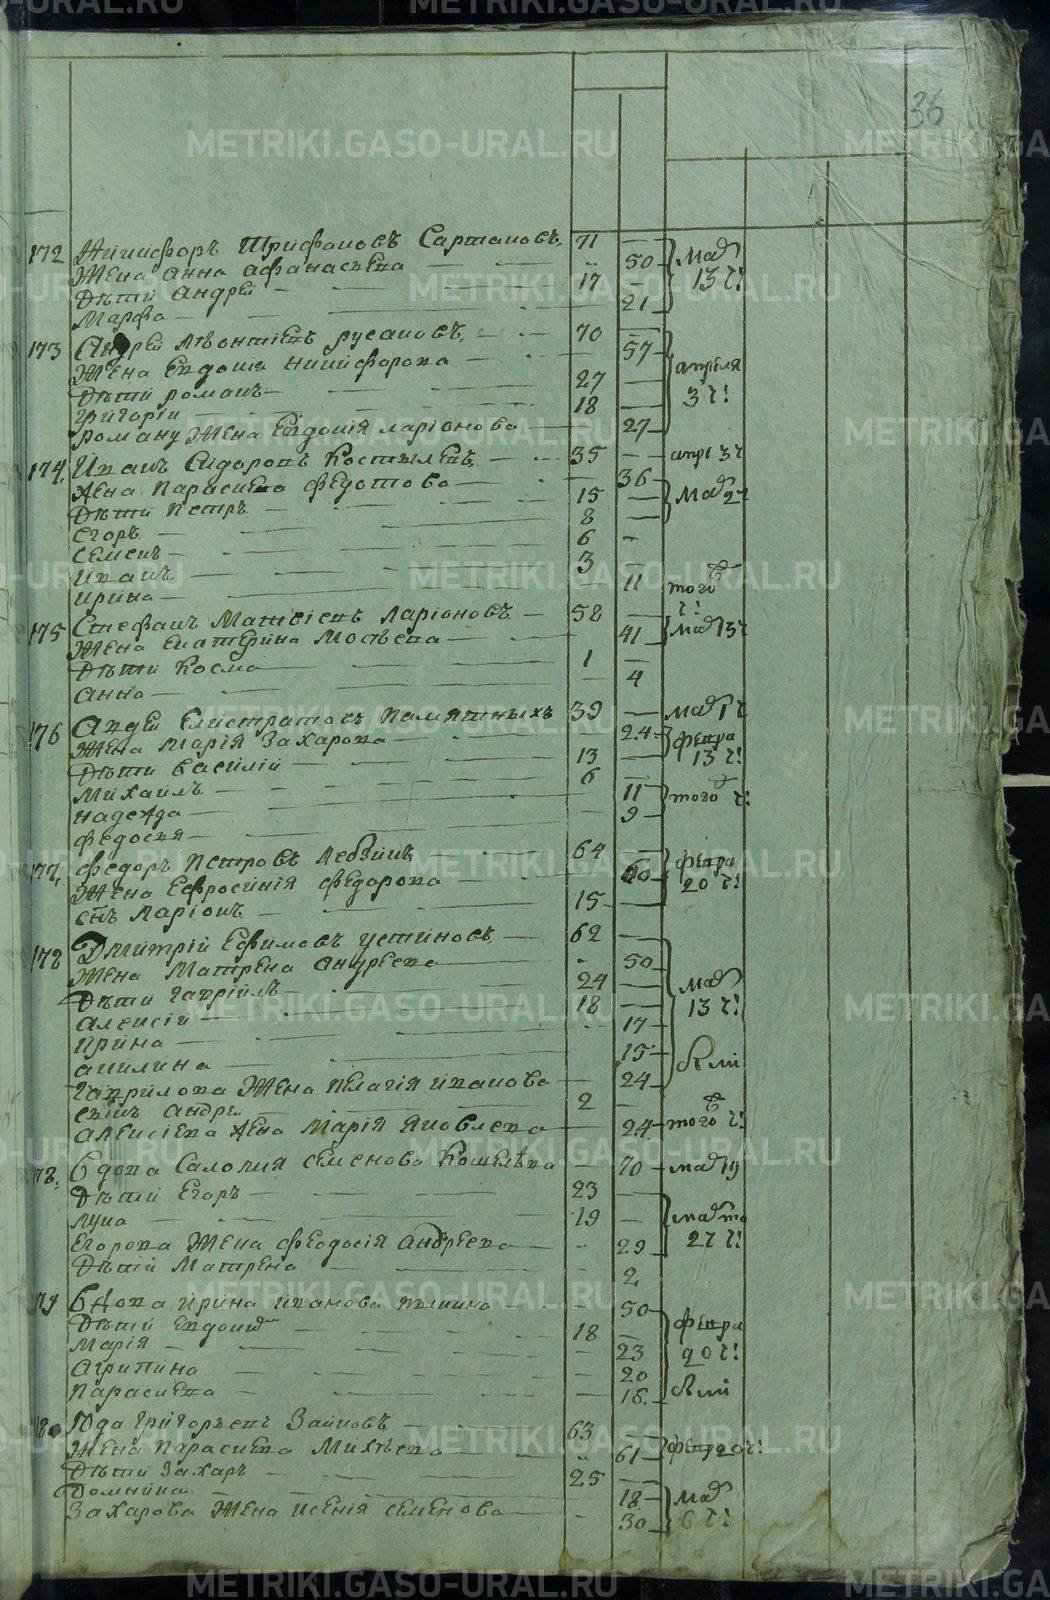 36
172 Никифоръ Трифановъ Сартаковъ 71 —
Жена Анна Афанасьева — 50 мая
Дѣти Андрей — 17 — 13 ч!
Марфа — 21
173 Андрей Лѣонтиевъ Русаковъ 70 —
Жена Евдокия Никифорова — 57 апреля
Дѣти романъ — 27 — 3 ч!
григорій — 18 —
роману Жена Евдокія ларіонова — 27
174 Иванъ Сидоровъ Костылевъ 35 — апре 3 ч
Жена Парасковья Федотова — 36
Дѣти Петръ — 15 — мая 2 ч
Егоръ — 8 —
Семенъ — 6 —
Иванъ — 3 —
Ирина — 11 того ч!
175 Стефанъ Матвіевъ Ларіоновъ 58 —
Жена Екатерина Мосѣева — 41 мая 13 ч
Дѣти Косма — 1 —
Анна — 4
176 Елистратовъ Памятныхъ 39 — мая 1 ч
Жена Марія Захарова — 24 февра
Дѣти Василій — 13 — 13 ч!
Михаилъ — 6 —
надежда — 11 того ч!
Федосья — 9
177 Федоръ Петровъ 64 — февра
Жена Ефросинія Федорова — 60 20 ч!
сынъ Ларіонъ — 15 —
178 Дмитрій Ефимовъ Устиновъ — 62 —
Жена Матрена Андреева — 50
Дѣти Гаврійлъ — 24 — мая
Алексій — 18 — 13 ч!
Ирина — 17
Акилина — 15
Гаврилова Жена Пелагія Иванова — 24
сынъ Андрей 2 —
Алексіева Жена Марія Яковлева — 24 того ч!
78 Вдова Саломия Семенова Кошелѣва — 70 мая 9
Дѣти Егоръ — 23 —
Лука — 19 — мая
Егорова Жена Феодосія Андреева — 29 27 ч!
Дѣти Матрена — 2
79 Вдова Ирина Иванова — 50 февра
Дѣти 18 — 20 ч!
Марія — 23
Агрипина — 20
Парасковья — 18
180 Юда Григорьевъ Зайковъ — 63 —
Жена Парасковья Михѣева — 61 фев 20 ч!
Дѣти Захаръ — 25 —
Домника — 18 мая
Захарова Жена Ксенія Семенова — 30 6 ч!
METRIKI.GASO-URAL.RU